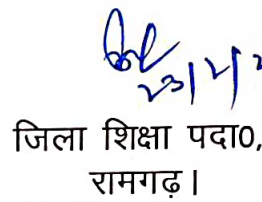 23/2/2
जिला शिक्षा पदा0,
रामगढ़।